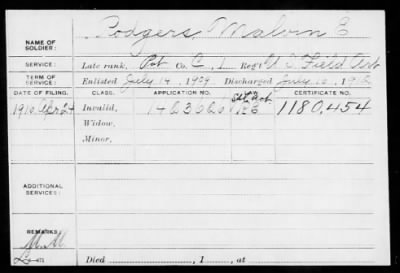 Rodgers, Malvin E
NAME OF SOLDIER:
SERVICE: Late rank, Pvt Co. C, 1 Reg't U.S. Field Art
TERM OF SERVICE: Enlisted July 14, 1909 Discharged July 10, 1912
DATE OF FILING. CLASS. APPLICATION NO. CERTIFICATE NO.
Act
1916 Apr 24 Invalid, 1423626 1180.454
Widow,
Minor,
ADDITIONAL SERVICES:
REMARKS:
Died , 1 , at